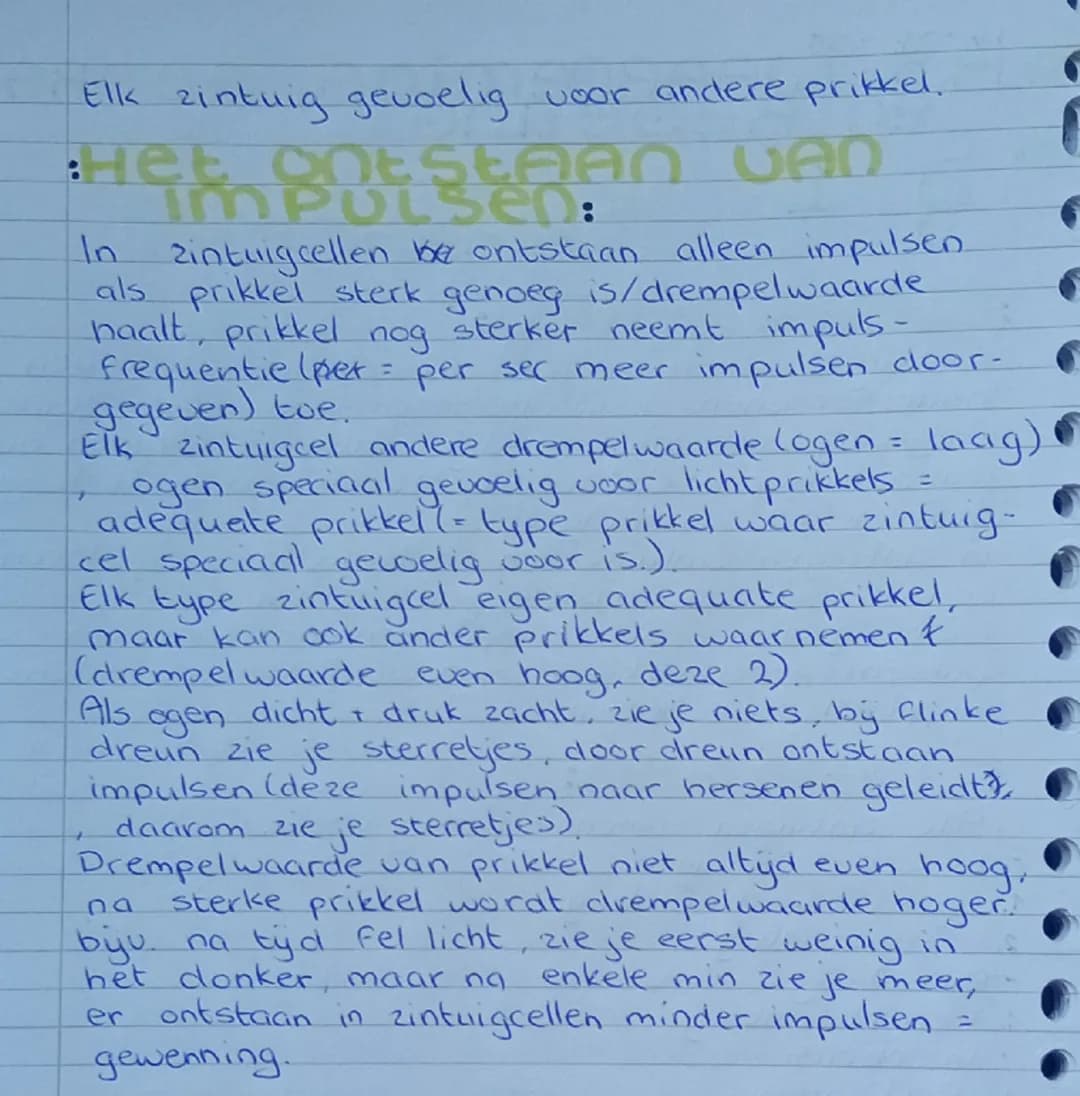 Elk zintuig gevoelig voor andere prikkel.
:Het ontstaan van
impulsen:
In zintuigcellen ontstaan alleen impulsen
als prikkel sterk genoeg is/drempelwaarde
haalt, prikkel nog sterker neemt impuls-
frequentie (per = per sec meer impulsen door-
gegeven) toe.
Elk zintuigcel andere drempelwaarde (ogen = laag)
, ogen speciaal gevoelig voor lichtprikkels =
adequate prikkel (= type prikkel waar zintuig-
cel speciaal gevoelig voor is.).
Elk type zintuigcel eigen adequate prikkel,
maar kan ook ander prikkels waarnemen
(drempelwaarde even hoog, deze 2).
Als ogen dicht + druk zacht, zie je niets, bij flinke
dreun zie je sterretjes, door dreun ontstaan
impulsen (deze impulsen naar hersenen geleidt
, daarom zie je sterretjes).
Drempelwaarde van prikkel niet altijd even hoog,
na sterke prikkel wordt drempelwaarde hoger.
bijv. na tijd fel licht, zie je eerst weinig in
het donker, maar na enkele min zie je meer,
er ontstaan in zintuigcellen minder impulsen =
gewenning.